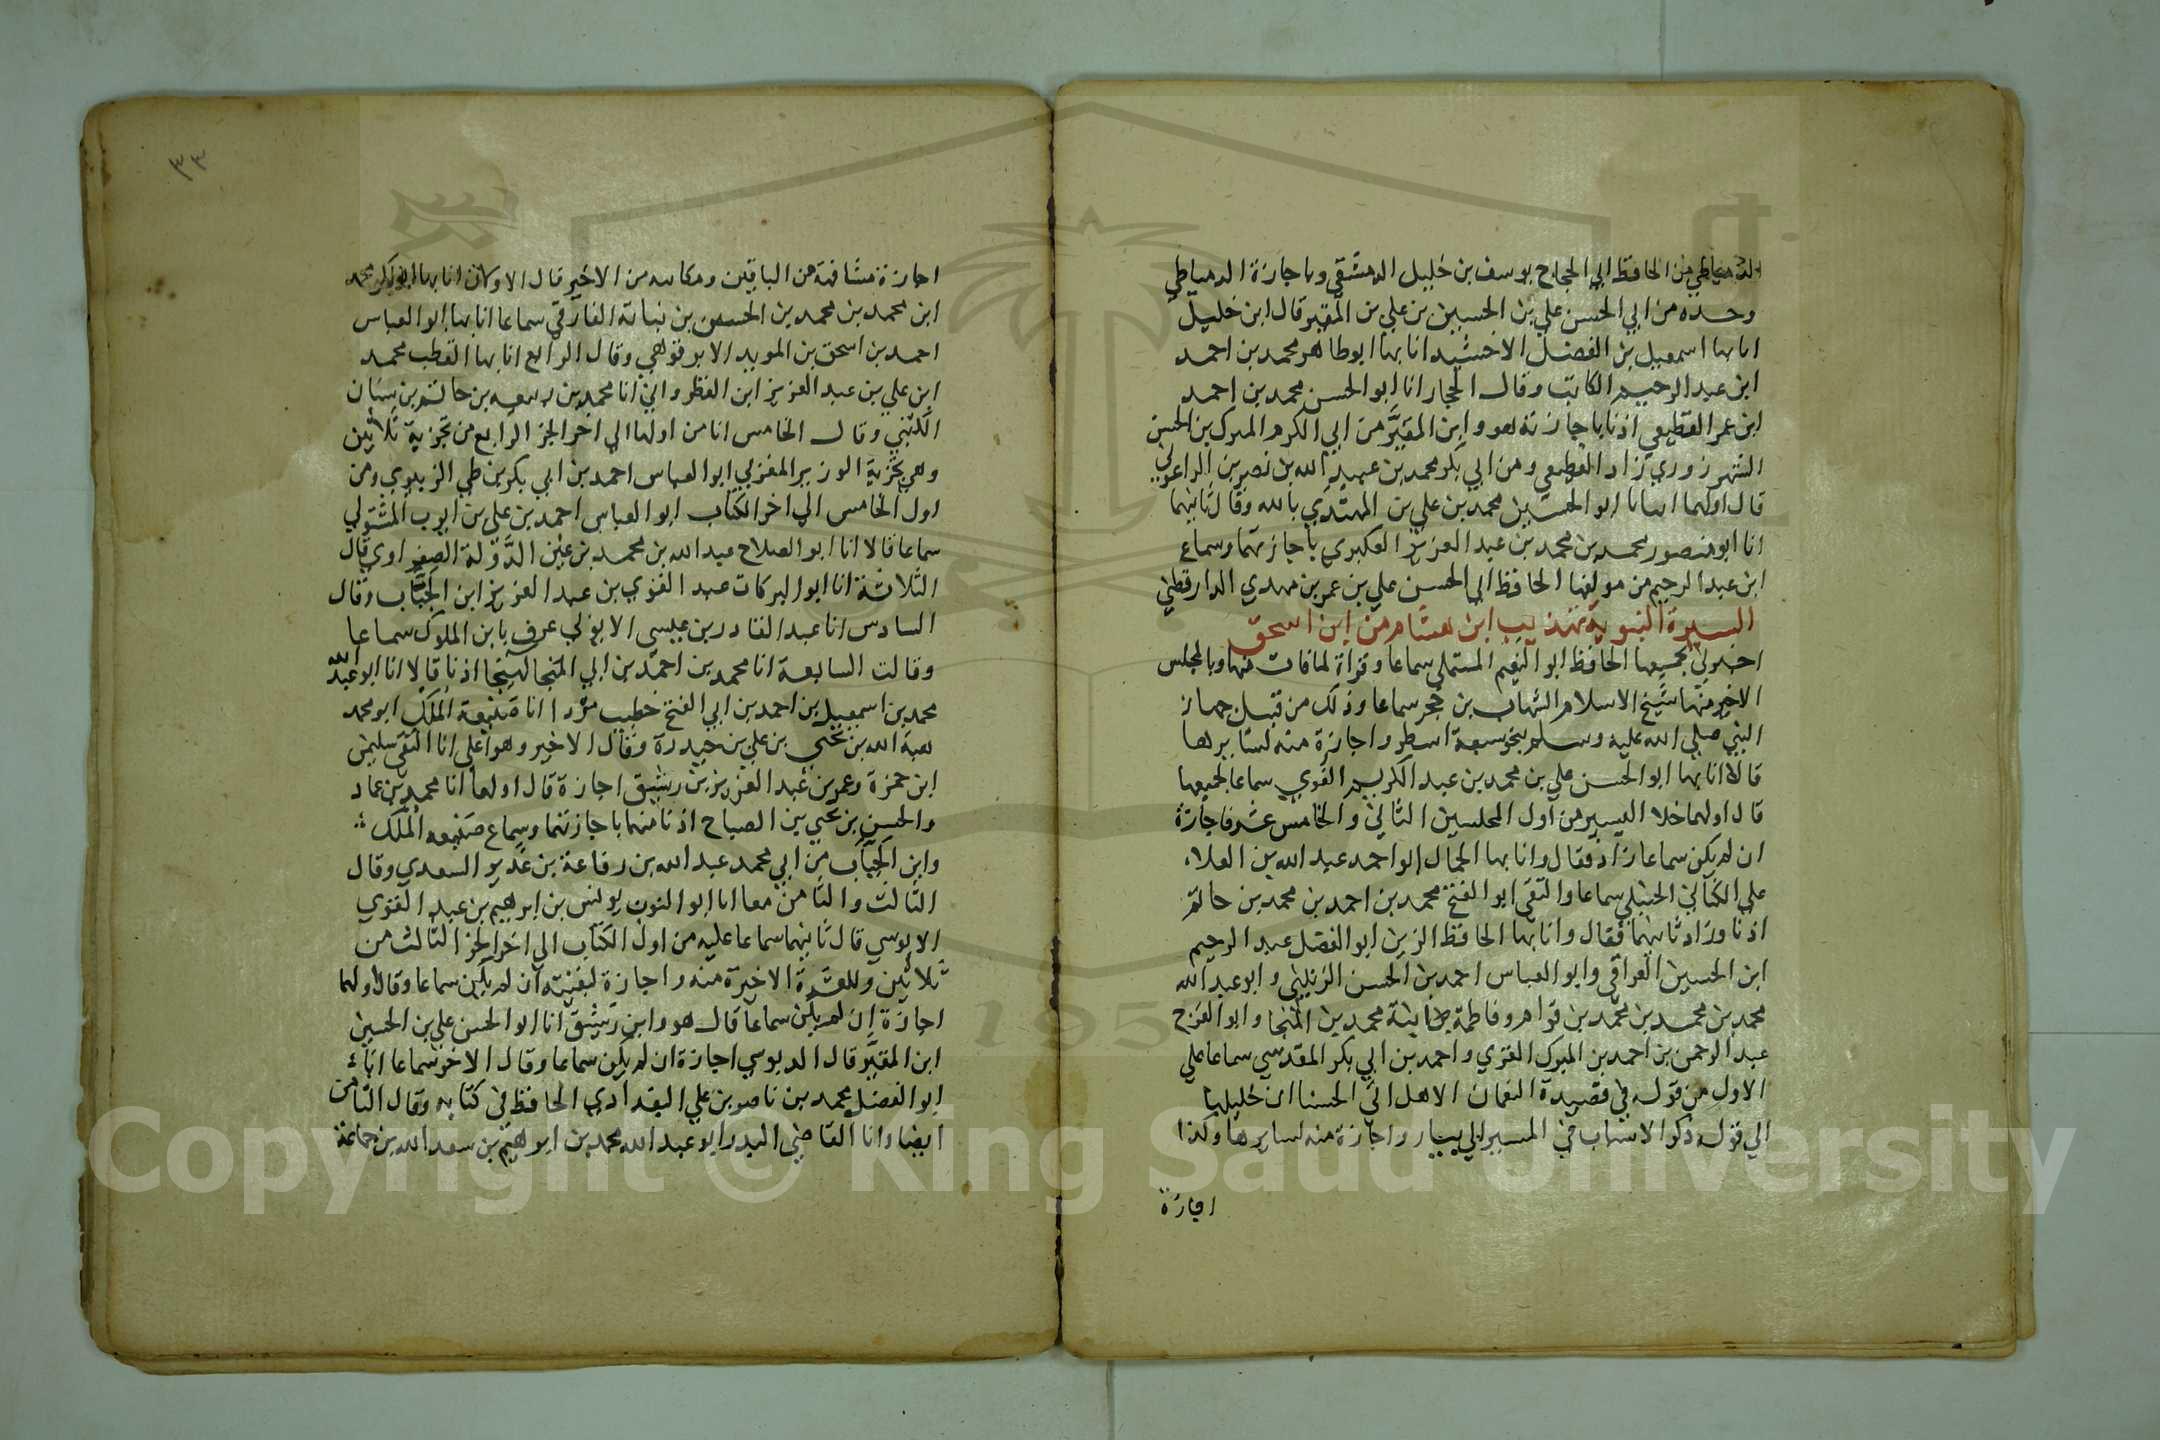 الدمياطي من الحافظ ابي الحجاج يوسف بن خليل الدمشقي وباجازة الدمياطي
وحده من ابي الحسن علي بن الحسين بن علي بن المقير قال ابن خليل
انابها اسمعيل بن الفضل الاخشيد انابها ابو طاهر محمد بن احمد
ابن عبد الرحيم الكاتب وقال الحجار انا ابو الحسن محمد بن احمد
ابن عمر القطيعي اذنا باجازته هو وابن المقيَّر من ابي الكرم المبرك بن الحسن
الشهرزوري زاد القطيعي ومن ابي بكر محمد بن عبيد الله بن نصر بن الزاغوني
قال اولهما انبانا ابو الحسين محمد بن علي بن المهتدي بالله وقال ثانيهما
انا ابو منصور محمد بن محمد بن عبد العزيز العكبري باجازتهما وسماع
ابن عبد الرحيم من مولفها الحافظ ابي الحسن علي بن عمر بن مهدي الدارقطني
السيرة النبوية تهذيب ابن هشام من ابن اسحق
اخبرني بجميعها الحافظ ابو النعيم المستملي سماعا وقراة لما فات منها وبالمجلس
الاخير منها شيخ الاسلام الشهاب بن حجر سماعا وذلك من قبيل جهاز
النبي صلى الله عليه وسلم بنحو سبعة اسطر واجازة منه لسايرها
قالا انابها ابو الحسن علي بن محمد بن عبد الكريم الفوي سماعا لجميعها
قال اولهما خلا اليسير من اول المجلسين الثاني والخامس عشر فاجازة
ان لم يكن سماعا زاد فقال وانابها الجمال ابو احمد عبد الله بن العلاء
علي الكناني الحنبلي سماعا والتقى ابو الفتح محمد بن احمد بن محمد بن حاتم
اذنا وزاد ثانيهما فقال وانابها الحافظ الزين ابو الفضل عبد الرحيم
ابن الحسين العراقى وابو العباس احمد بن الحسن الزينبي وابو عبد الله
محمد بن محمد بن محمد بن قوام وفاطمة ابنة محمد بن المنجا وابو الفرج
عبد الرحمن بن احمد بن المبرك الغزي واحمد بن ابي بكر المقدسي سماعا علي
الاول من قوله في قصيدة النعمان الا هل اتى الحسنا ان خليلها
الي قوله ذكر الاسباب في المسير الي واجازة منه لسايرها وكذا
اجازة
٣٣
اجازة مشافهة من الباقين ومكاتبه من الاخير قال الاولان انابها ابو بكر محمد
ابن محمد بن محمد بن الحسين بن نباتة الفارقي سماعا انابها ابو العباس
احمد بن اسحق بن المويد الابرقوهي وقال الرابع انابها القطب محمد
ابن علي بن عبد العزيز ابن القطرواني انا محمد بن ربيعه بن حاتم بن سنان
الكتبي وقال الخامس انا من اولها الى اخر الجز الرابع من تجزية ثلاثين
وهي تجزية الوزير المغربي ابو العباس احمد بن ابي بكر بن طي الزبيري ومن
اول الخامس الى اخر الكتاب ابو العباس احمد بن علي بن ايوب المشتولي
سماعا قالا انا ابو الصلاح عبد الله بن محمد بن عين الدَّوْلة الصفراوي قال
الثلاثة انا ابو البركات عبد القوي بن عبد العزيز ابن الجبَّاب وقال
السادس انا عبد القادر بن عيسى الايوبي عرف بابن الملوك سماعا
وقالت السابعة انا محمد بن احمد بن ابي الهيجا اذنا قالا انا ابو عبد الله
محمد بن اسمعيل بن احمد بن ابي الفتح خطيب مردا انا صنيعة الملك ابو محمد
هبة الله بن يحيى بن علي بن حيدرة وقال الاخير وهو اعلى انا التقى سليمن
ابن حمزة وعمر بن عبد العزيز بن رشيق اجازة قال اولهما انا محمد بن عماد
والحسن بن يحيي بن الصباح اذنا منهما باجازتهما وسماع صنيعه الملك
وابن الجباب من ابي محمد عبد الله بن رفاعة بن غدير السعدي وقال
الثالث والثامن معا انا ابو النون يونس بن ابرهيم بن عبد القوي
الدبوسي قال ثانيهما سماعا عليه من اول الكتاب الي اخر الجز الثالث من
ثلاثين وللعشرة الاخيرة منه واجازة لبقيته ان لم يكن سماعا وقال اولهما
اجازة ان لم يكن سماعا قال هو وابن رشيق انا ابو الحسن علي بن الحسين
ابن المقيَّر قال الدبوسي اجازة ان لم يكن سماعا وقال الاخر سماعا انا
ابو الفضل محمد بن ناصر بن علي البغدادي الحافظ في كتابه وقال الثامن
ايضا وانا القاضي البدر ابو عبد الله محمد بن ابرهيم بن سعد الله بن جماعة
Copyright © King Saud University
195